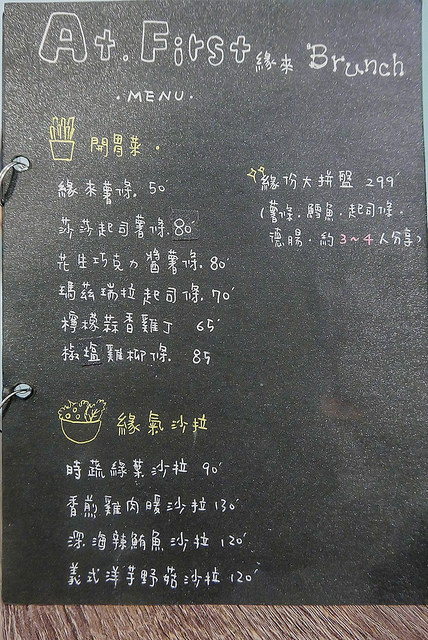 At. First 緣來 Brunch
·MENU·
開胃菜·
緣來薯條. 50
莎莎起司薯條. 80
花生巧克力醬薯條. 80
瑪茲瑞拉起司條. 70
檸檬蒜香雞丁 65
椒塩雞柳條. 85
緣份大拼盤 299
(薯條.鱈魚.起司條.
德腸.約3~4人分享)
緣氣沙拉
時蔬綠葉沙拉 90
香煎雞肉暖沙拉 130
深海辣鮪魚沙拉 120
義式洋芋野菇沙拉 120